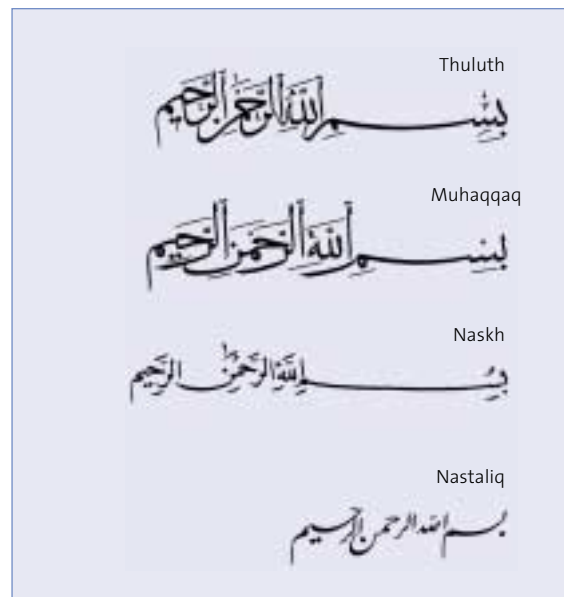 Thuluth
بِسْمِ اللَّهِ الرَّحْمَنِ الرَّحِيمِ
Muhaqqaq
بِسْمِ اللَّهِ الرَّحْمَنِ الرَّحِيمِ
Naskh
بِسْمِ اللَّهِ الرَّحْمَنِ الرَّحِيمِ
Nastaliq
بسم الله الرحمن الرحيم